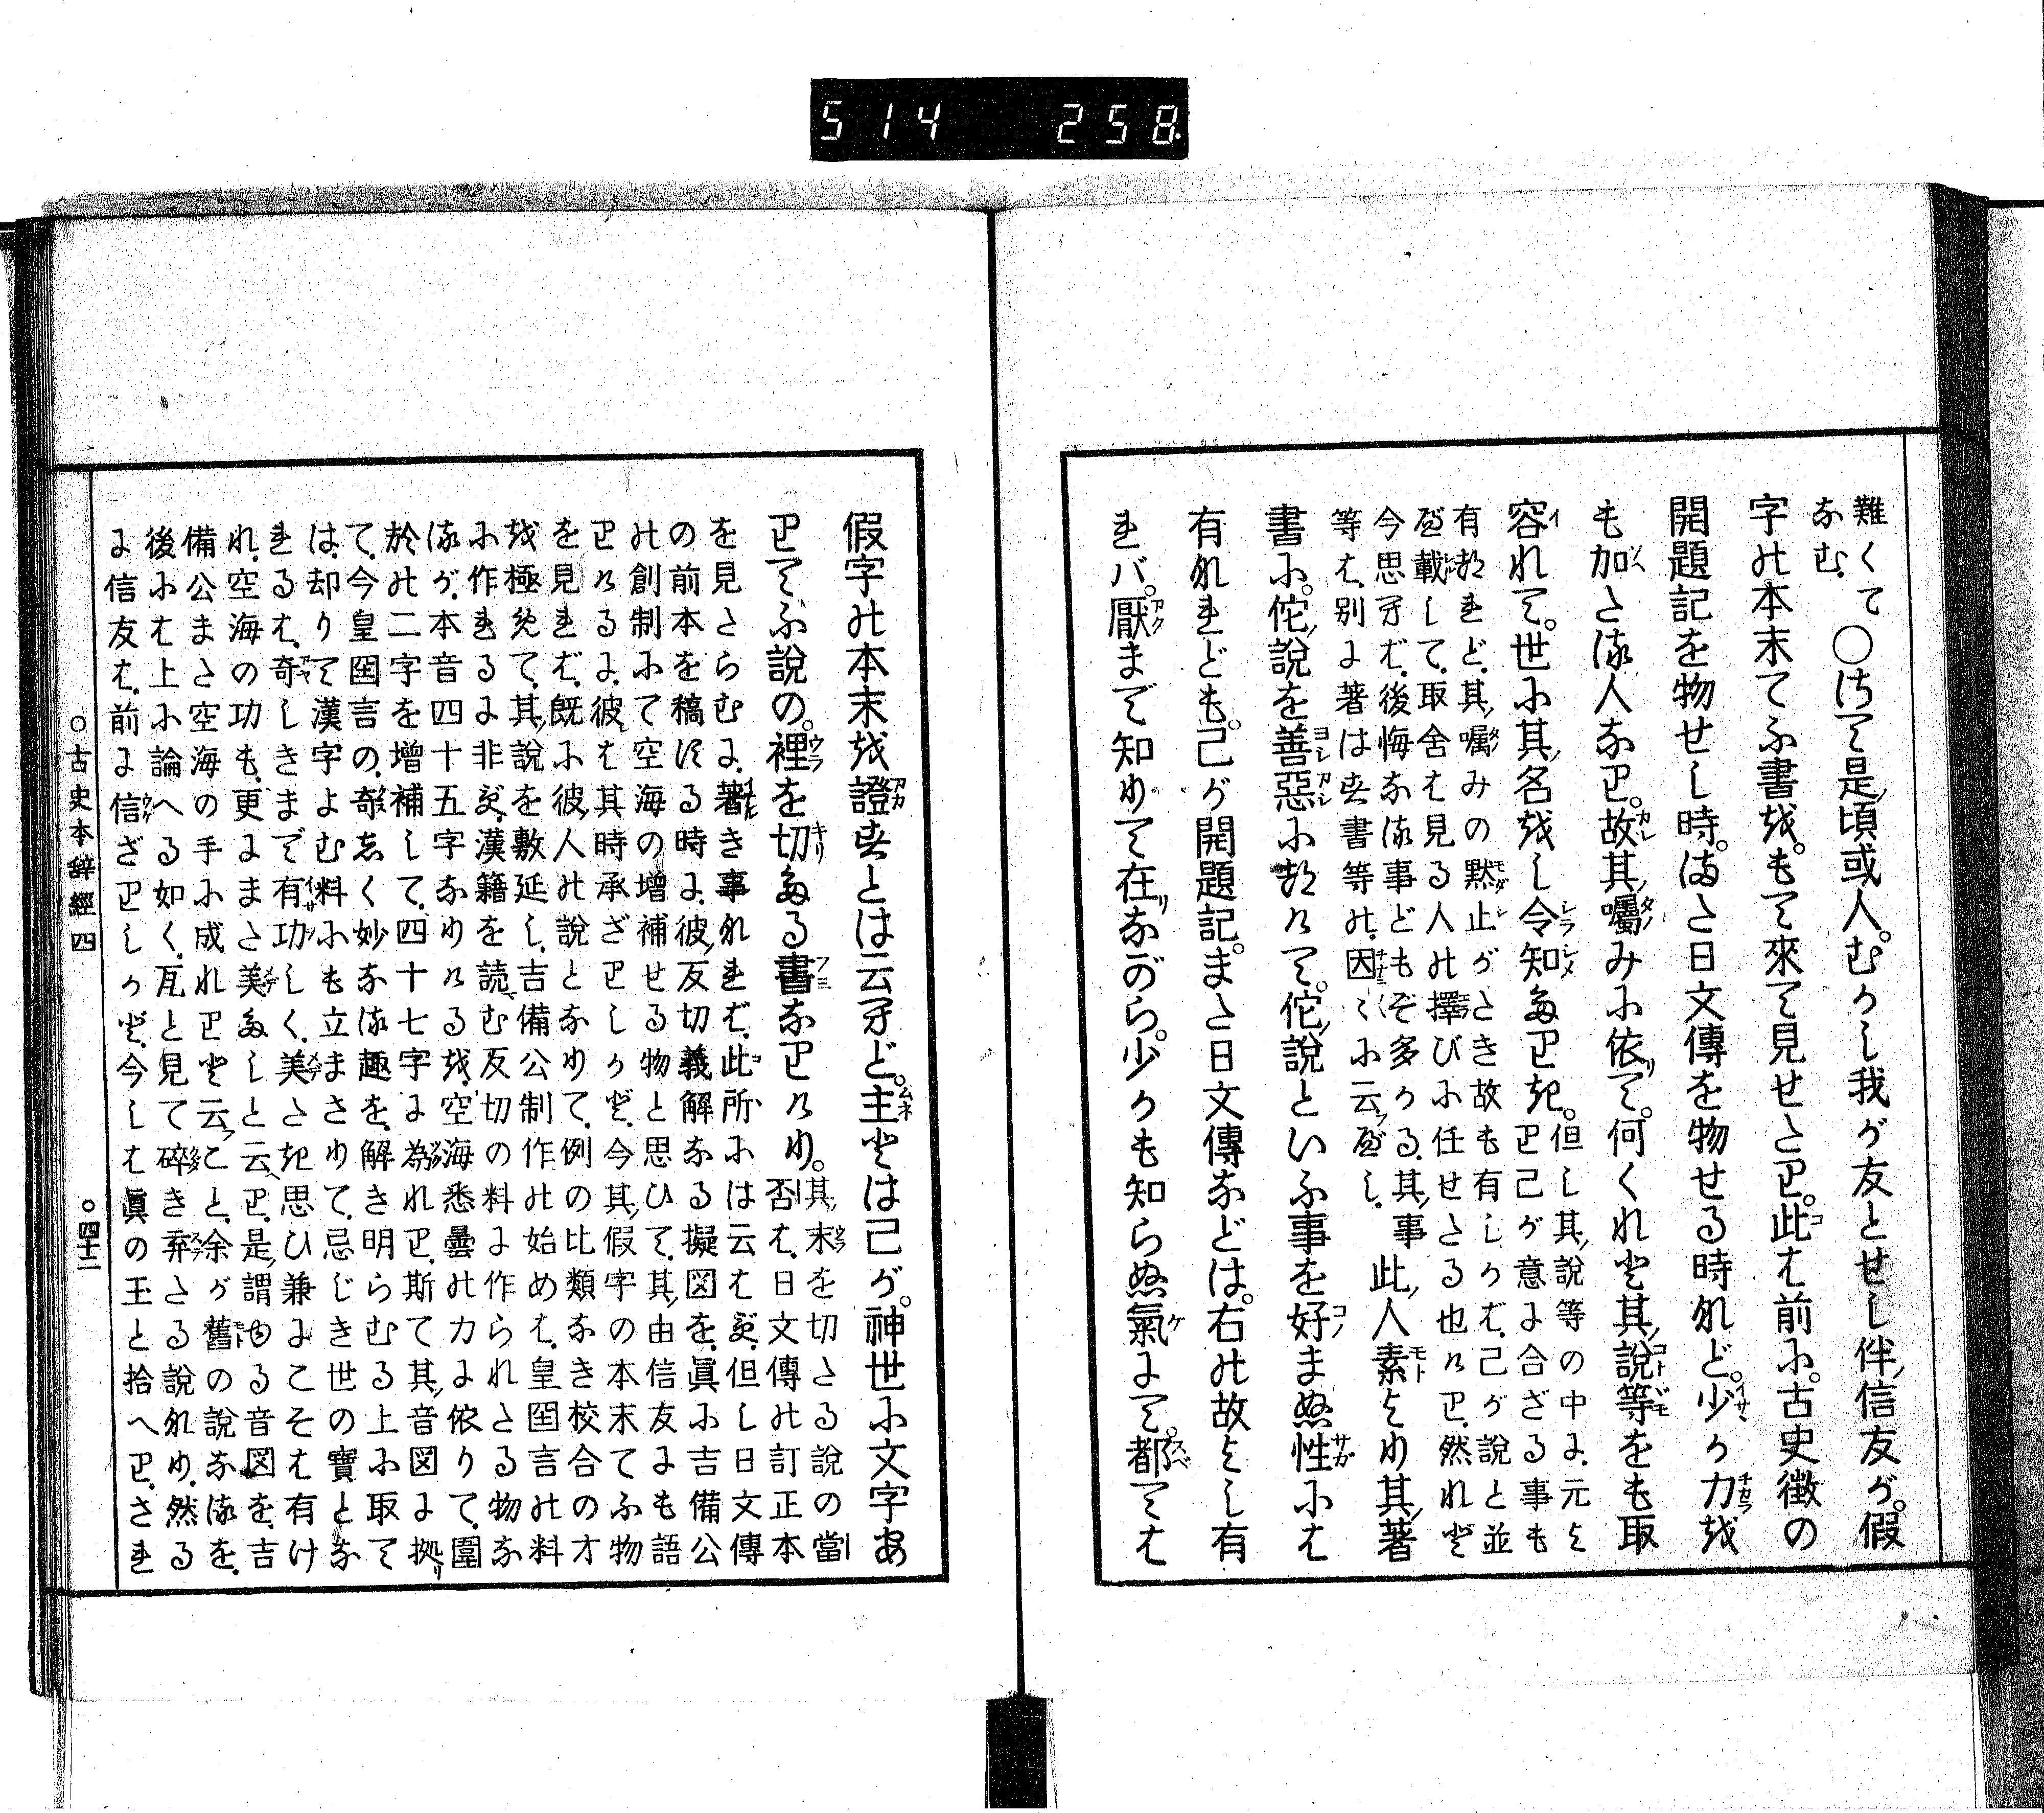 514 258
難くて〇けて是ノ頃或人。むかし我が友とせし伴ノ信友が。假
なむ。
字の本末てふ書を。もて來て見せたり。此は前に。古史徴の
開題記を物せし時。また日文傳を物せる時なれど。少か力を
も加たる人なり。故其ノ囑みに依て。何くれと其ノ說等をも取
容れて。世に其ノ名をし令知たりき。但し其ノ說等の中に。元より己が意に合ざる事も
有なれど。其ノ囑みの黙止がたき故も有しかば。己が說と並
べ載して。取舍は見る人の擇びに任せたる也けり。然れど
今思へば。後悔なる事どもぞ多かる。其ノ事
等は。別に著はす書等の。因々に云フべし。
此ノ人素より其ノ著
書に。佗ノ說を善惡に訁けて。佗ノ說といふ事を好まぬ性には
有れども。己が開題記。また日文傳などは。右の故よし有
れバ。厭まで知りて在リながら。少かも知らぬ氣にて。都ては
假字の本末を證すとは云へど。主とは己が。神世に文字あ
りてふ說の。裡を切たる書なりけり。其ノ末を切たる說の當
否は。日文傳の訂正本
を見たらむに。著き事なれば。此所には云はず。但し日文傳
の前本を稿ける時に。彼ノ反切義解なる擬図を。眞に吉備公
の創制にて空海の增補せる物と思ひて。其ノ由信友にも語
りけるに。彼は其時承ざりしかど。今其ノ假字の本末てふ物
を見れば。既に彼ノ人の說となりて。例の比類なき校合の才
を極めて。其ノ說を敷延し。吉備公制作の始めは。皇国言の料
に作れるに非ず。漢籍を読む反切の料に作られたる物な
るが。本音四十五字なりけるを。空海悉曇の力に依りて。圍
於の二字を增補して。四十七字に為れり。斯て其ノ音図に拠リ
て。今皇国言の。奇しく妙なる趣を。解き明らむる上に取て
は。却りて漢字よむ料にも立まさりて。忌じき世の寶とな
れるは。奇しきまで有功しく。美たき思ひ兼にこそは有け
れ。空海の功も。更にまた美たしと云へり。是ノ謂ゆる音図を。吉
備公また空海の手に成れりと云フこと。余が舊の說なるを。
後には上に論へる如く。瓦と見て碎き弃たる說なり。然る
に信友は。前に信ざりしかど。今しは眞の玉と拾へり。され
〇古史本辭經四　〇四十二